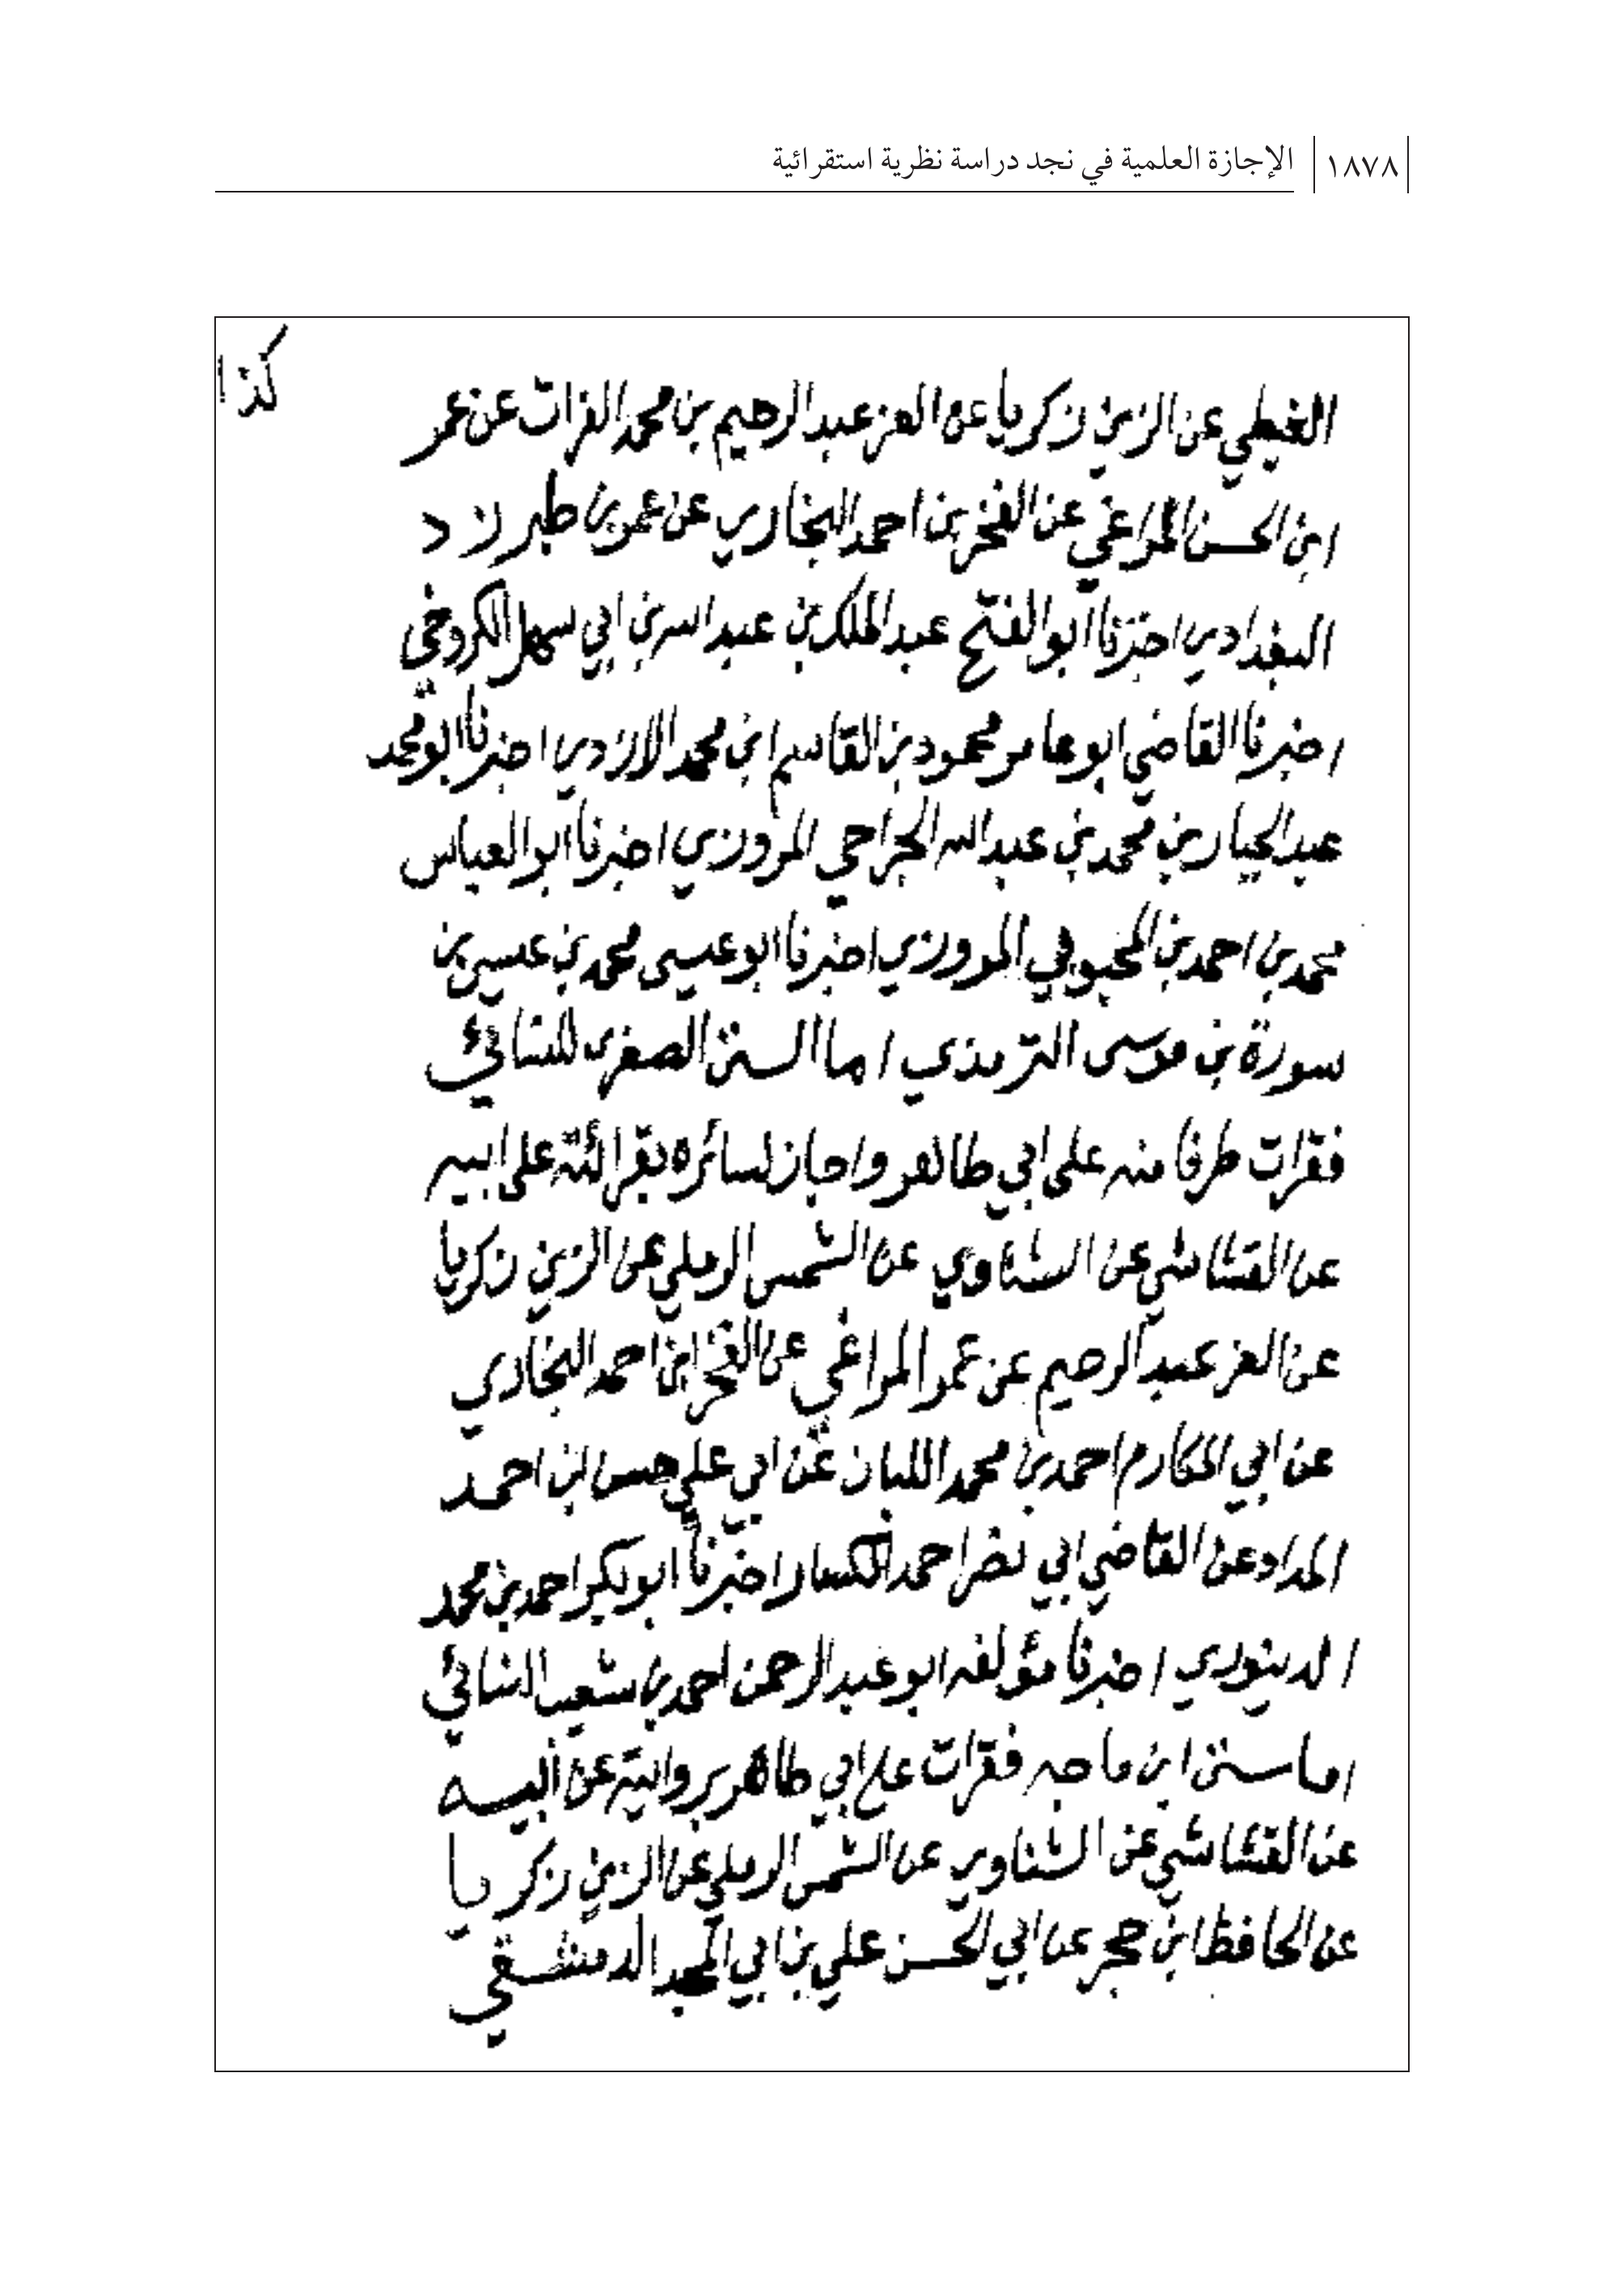 ١٨٧٨ الإجازة العلمية في نجد دراسة نظرية استقرائية
كذا
الغيطي عن الزين زكريا عن العز عبد الرحيم بن محمد الفرات عن عمر
ابن الحسن المراغي عن الفخر بن احمد البخاري عن عمر بن طبرلاد
البغدادي اخبرنا ابو الفتح عبد الملك بن عبد الله بن ابي سهل الكروخي
اخبرنا القاضي ابو عامر محمود بن القاسم ابن محمد الازدي اخبرنا ابو محمد
عبد الجبار بن محمد بن عبد الله الجراحي المروزي اخبرنا ابو العباس
محمد بن احمد بن المحبوبي المروزي اخبرنا ابو عيسى محمد بن عيسى بن
سورة بن موسى الترمذي اما السنن الصغرى للنسائي
فقرات طرفا منه على ابي طاهر واجاز لسائره بقرائته على ابيه
عن القشاشي عن الشناوي عن الشمس الرملي عن الزين زكريا
عن العز عبد الرحيم عن عمر المراغي عن الفخر ابن احمد البخاري
عن ابي المكارم احمد بن محمد اللبان عن ابي علي حسن ابن احمد
المداد عن القاضي ابي نصر احمد الكسار اخبرنا ابو بكر احمد بن محمد
الدينوري اخبرنا مؤلفه ابو عبد الرحمن احمد بن شعيب النسائي
اما سنن ابن ماجه فقرات على ابي طاهر بروايته عن ابيه
عن القشاشي عن الشناوي عن الشمس الرملي عن الزين زكريا
عن الحافظ ابن حجر عن ابي الحسن علي بن ابي المجد الدمشقي